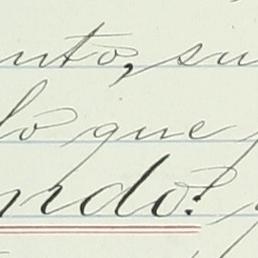 nto, su
lo que
ndo: